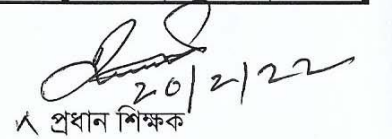 20/2/22
প্রধান শিক্ষক